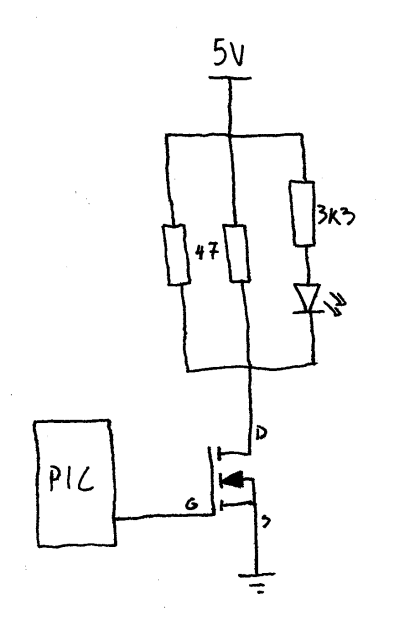 5V
47
3K3
D
PIC
G
S